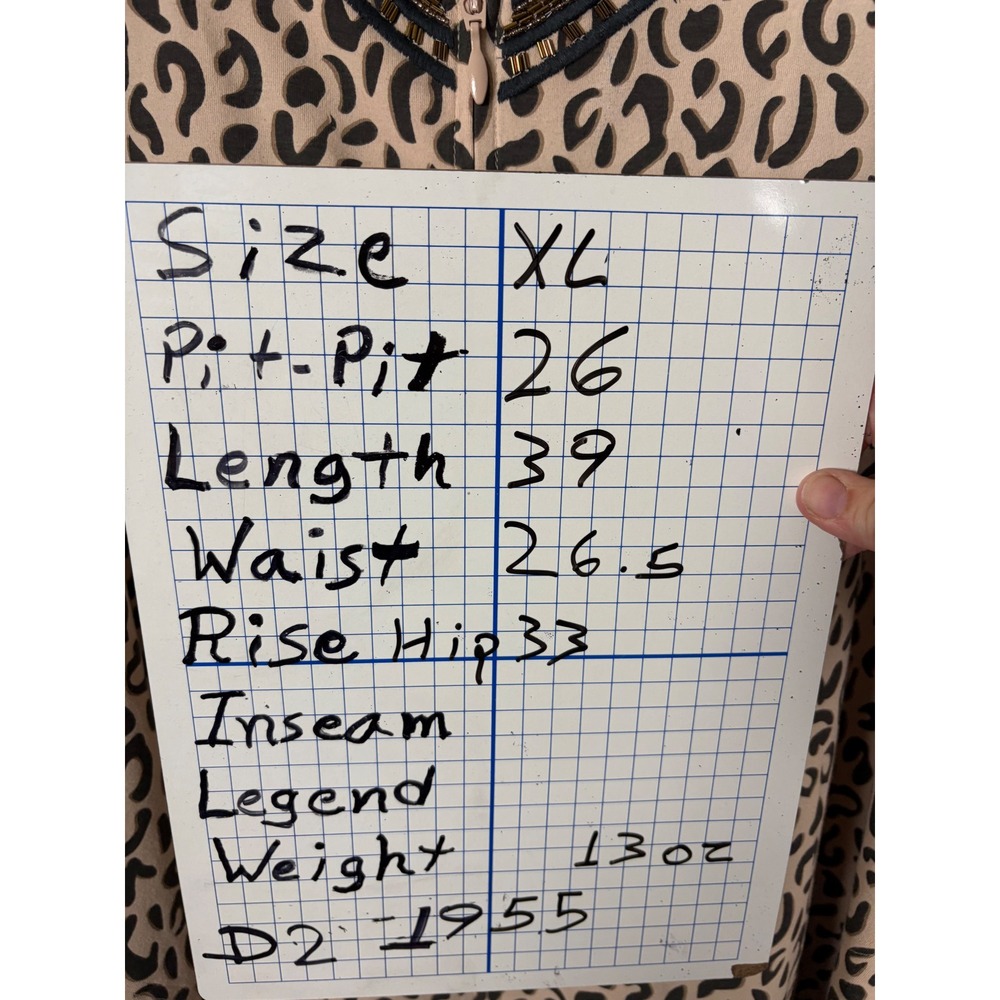 Size XL
Pit-Pit 26
Length 39
Waist 26.5
Rise Hip 33
Inseam
Legend
Weight 13 oz
D2 -1955